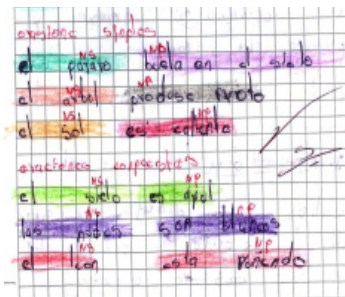 oraciones simples
NS NP
el pajaro buela en el sielo
VS VP
el arbol produse fruto
VS NP
el sol es caliente
oraciones compuestas
NS NP
el sielo es azul
NP NP
las nubes son blancas
NS NP
el leon esta